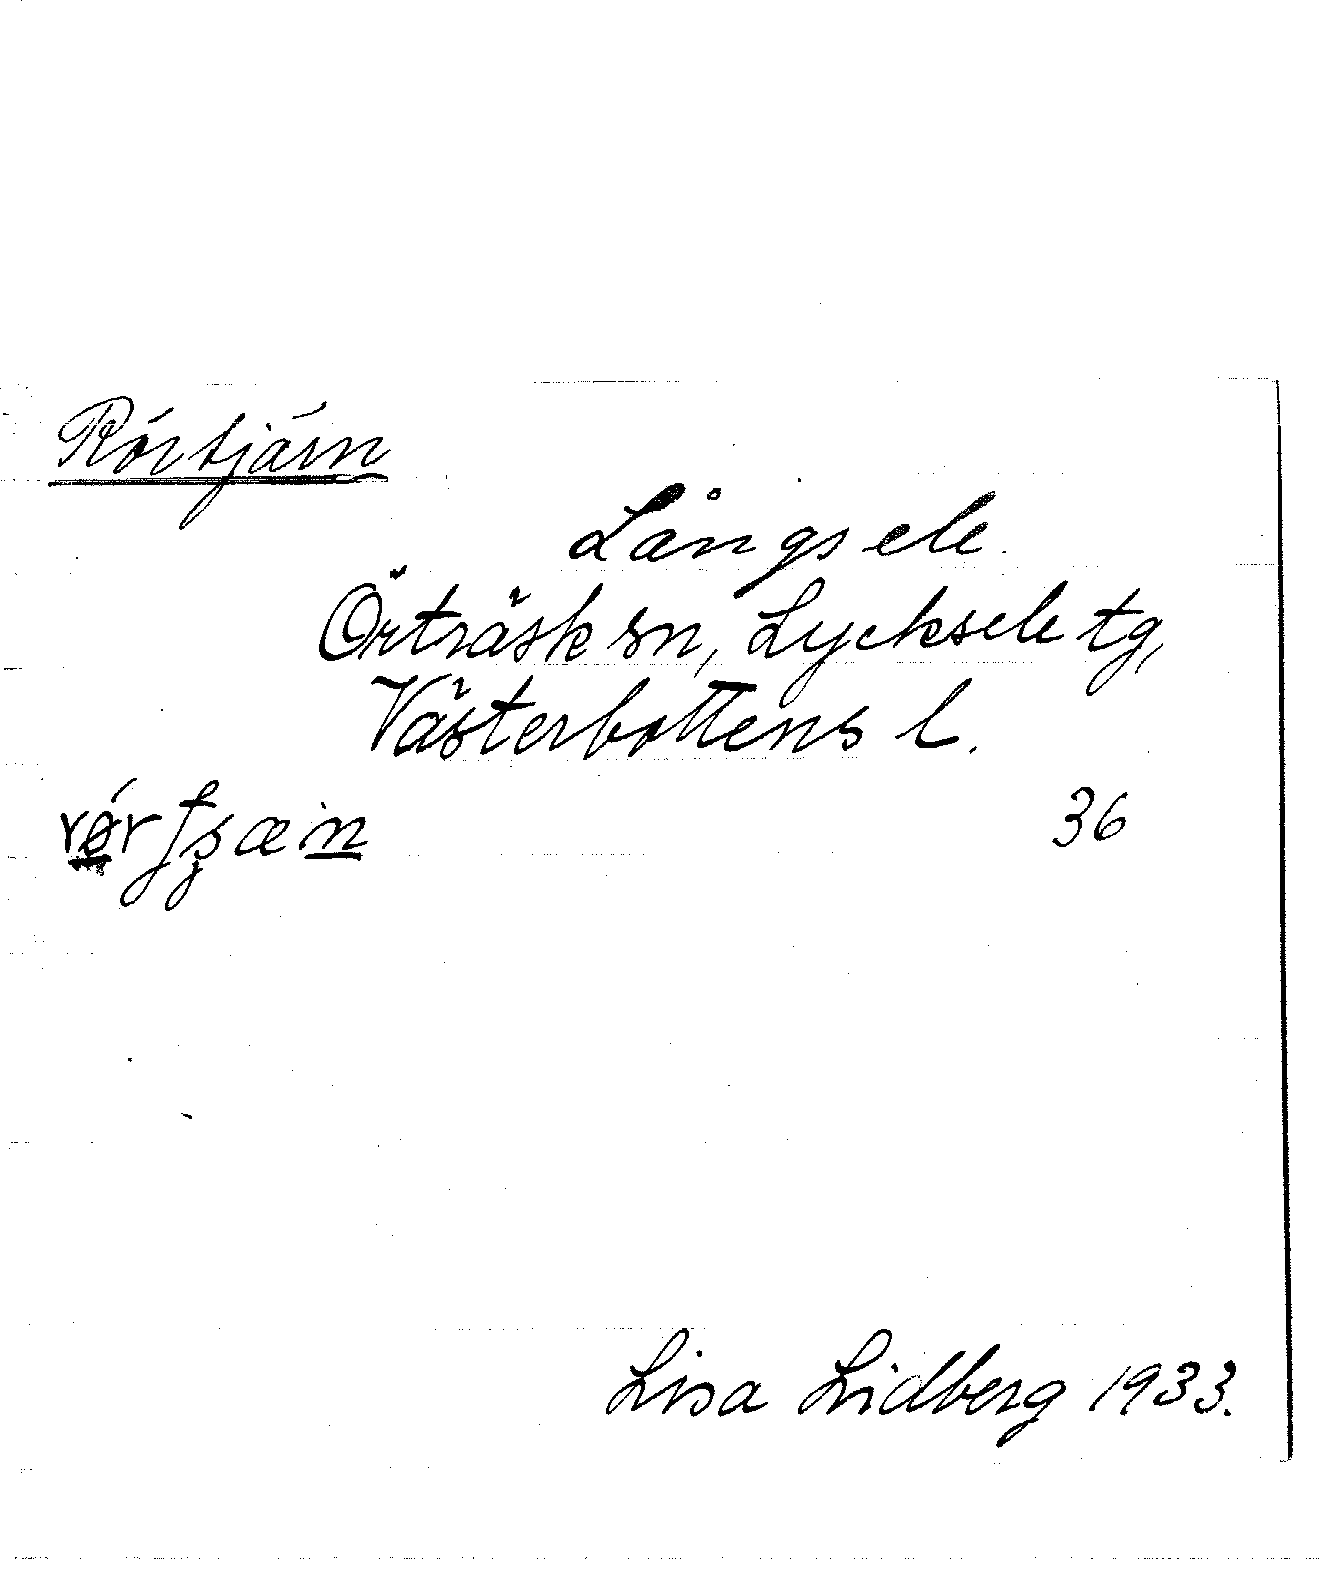 Rörtjärn
Långsele
Örträsk sn, Lycksele tg,
Västerbottens l.
36
Lisa Lidberg 1933.